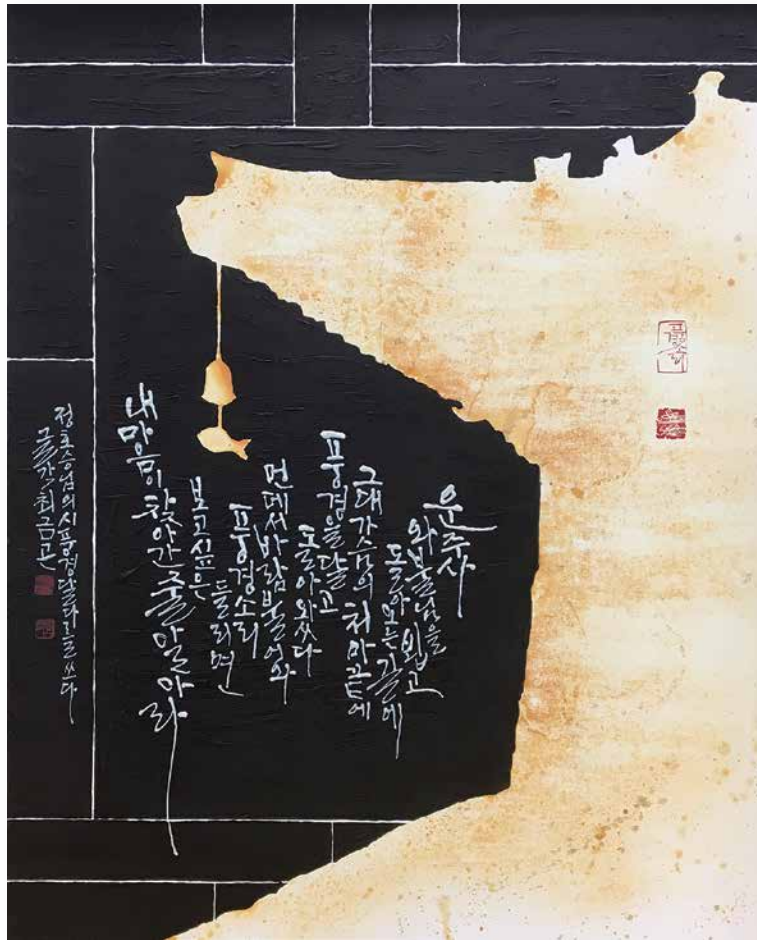 운주사
와불님을 뵙고
돌아오는 길에
그대 가슴의 처마 끝에
풍경을 달고
돌아왔다
먼데서 바람 불어와
풍경소리
들리면
보고 싶은
내 마음이 찾아간 줄 알아라
정호승님의 시 풍경달다를 쓰다
최금곤